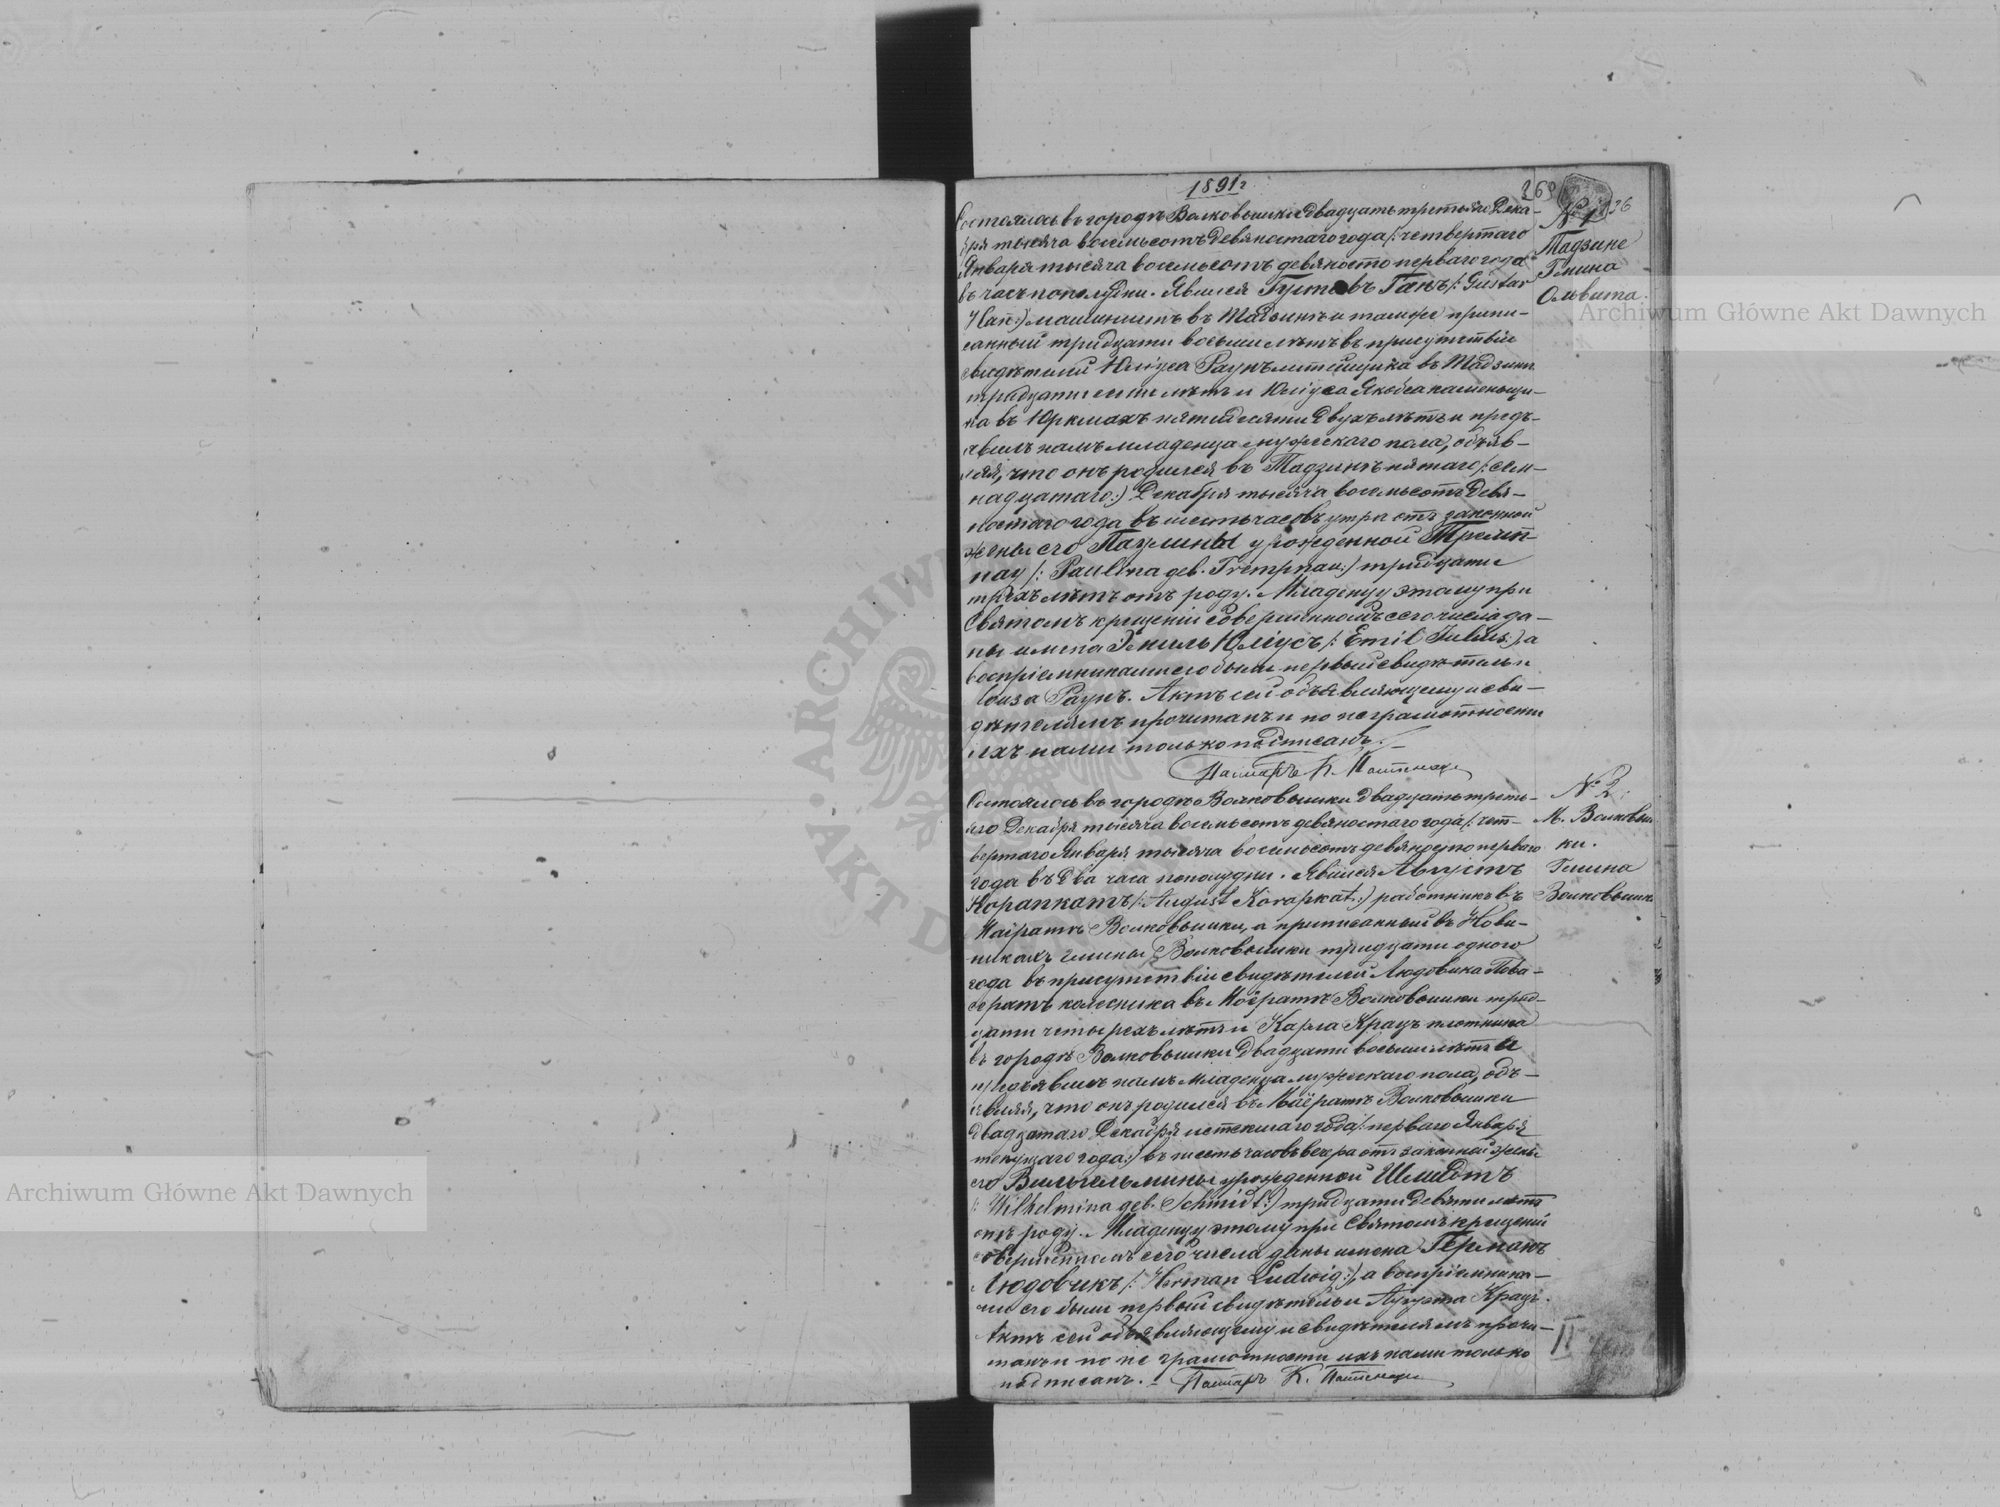 1891 г
269
Состоялось въ городѣ Волковышки двадцать третьяго Дека-
бря тысяча восемьсотъ девяностаго года /: четвертаго
Января тысяча восемьсотъ девяносто перваго года
въ часъ пополудни. Явился Густавъ Ганъ /: Gustav
Han :/ машинистъ въ Тадзинѣ и тамже припи-
санный тридцати восьми лѣтъ въ присутствіи
свидѣтелей Юліуса Раунъ литейщика въ Тадзинѣ
тридцати лѣтъ и Юліуса Якобса каменьщи-
ка въ Юркшахъ пятидесяти двухъ лѣтъ и предъ-
явилъ намъ младенца мужескаго пола, объяв-
ляя, что онъ родился въ Тадзинѣ пятаго /: сем-
надцатаго :/ Декабря тысяча восемьсотъ девя-
ностаго года въ шесть часовъ утра отъ законной
жены его Паулины урожденной Тремп-
нау /: Paulina geb. Trempnau :/ тридцати
трехъ лѣтъ отъ роду. Младенцу этому при
Святомъ крещеніи совершенномъ сего числа да-
ны имена Эмиль Юліусъ /: Emil Julius :/, а
воспріемниками его были первый свидѣтель и
Луиза Раунъ. Актъ сей объявляющему и сви-
дѣтелямъ прочитанъ и по неграмотности
ихъ нами только подписанъ. —
Пасторъ К.
№ 1
Тадзине
Гмина
Ольвита.
Состоялось въ городѣ Волковышки двадцать треть-
яго Декабря тысяча восемьсотъ девяностаго года /: чет-
вертаго Января тысяча восемьсотъ девяносто перваго
года въ два часа пополудни. Явился Августъ
Корапкатъ /: August Korapkat :/ работникъ въ
Маіоратѣ Волковышки, а приписанный въ Нови-
никахъ гмины Волковышки тридцати одного
года въ присутствіи свидѣтелей Людовика
колесника въ Маіоратѣ Волковышки трид-
цати четырехъ лѣтъ и Карла Крацъ плотника
въ городѣ Волковышки двадцати восьми лѣтъ и
предъявилъ намъ младенца мужескаго пола, объ-
являя, что онъ родился въ Маіоратѣ Волковышки
двадцатаго Декабря истекшаго года /: перваго Января
текущаго года :/ въ шесть часовъ вечера отъ законной жены
его Вильгельмины урожденной Шмидтъ
/: Wilhelmina geb. Schmidt :/ тридцати девяти лѣтъ
отъ роду. Младенцу этому при Святомъ крещеніи
совершенномъ сего числа даны имена Германъ
Людовикъ /: Herman Ludwig :/, а воспріемника-
ми его были первый свидѣтель и Августа Крацъ.
Актъ сей объявляющему и свидѣтелямъ прочи-
танъ и по не грамотности ихъ нами только
подписанъ. — Пасторъ К.
№ 2
М. Волковыш
ки.
Гмина
Волковышки
ARCHIWUM
AKT D
Archiwum Główne Akt Dawnych
Archiwum Główne Akt Dawnych